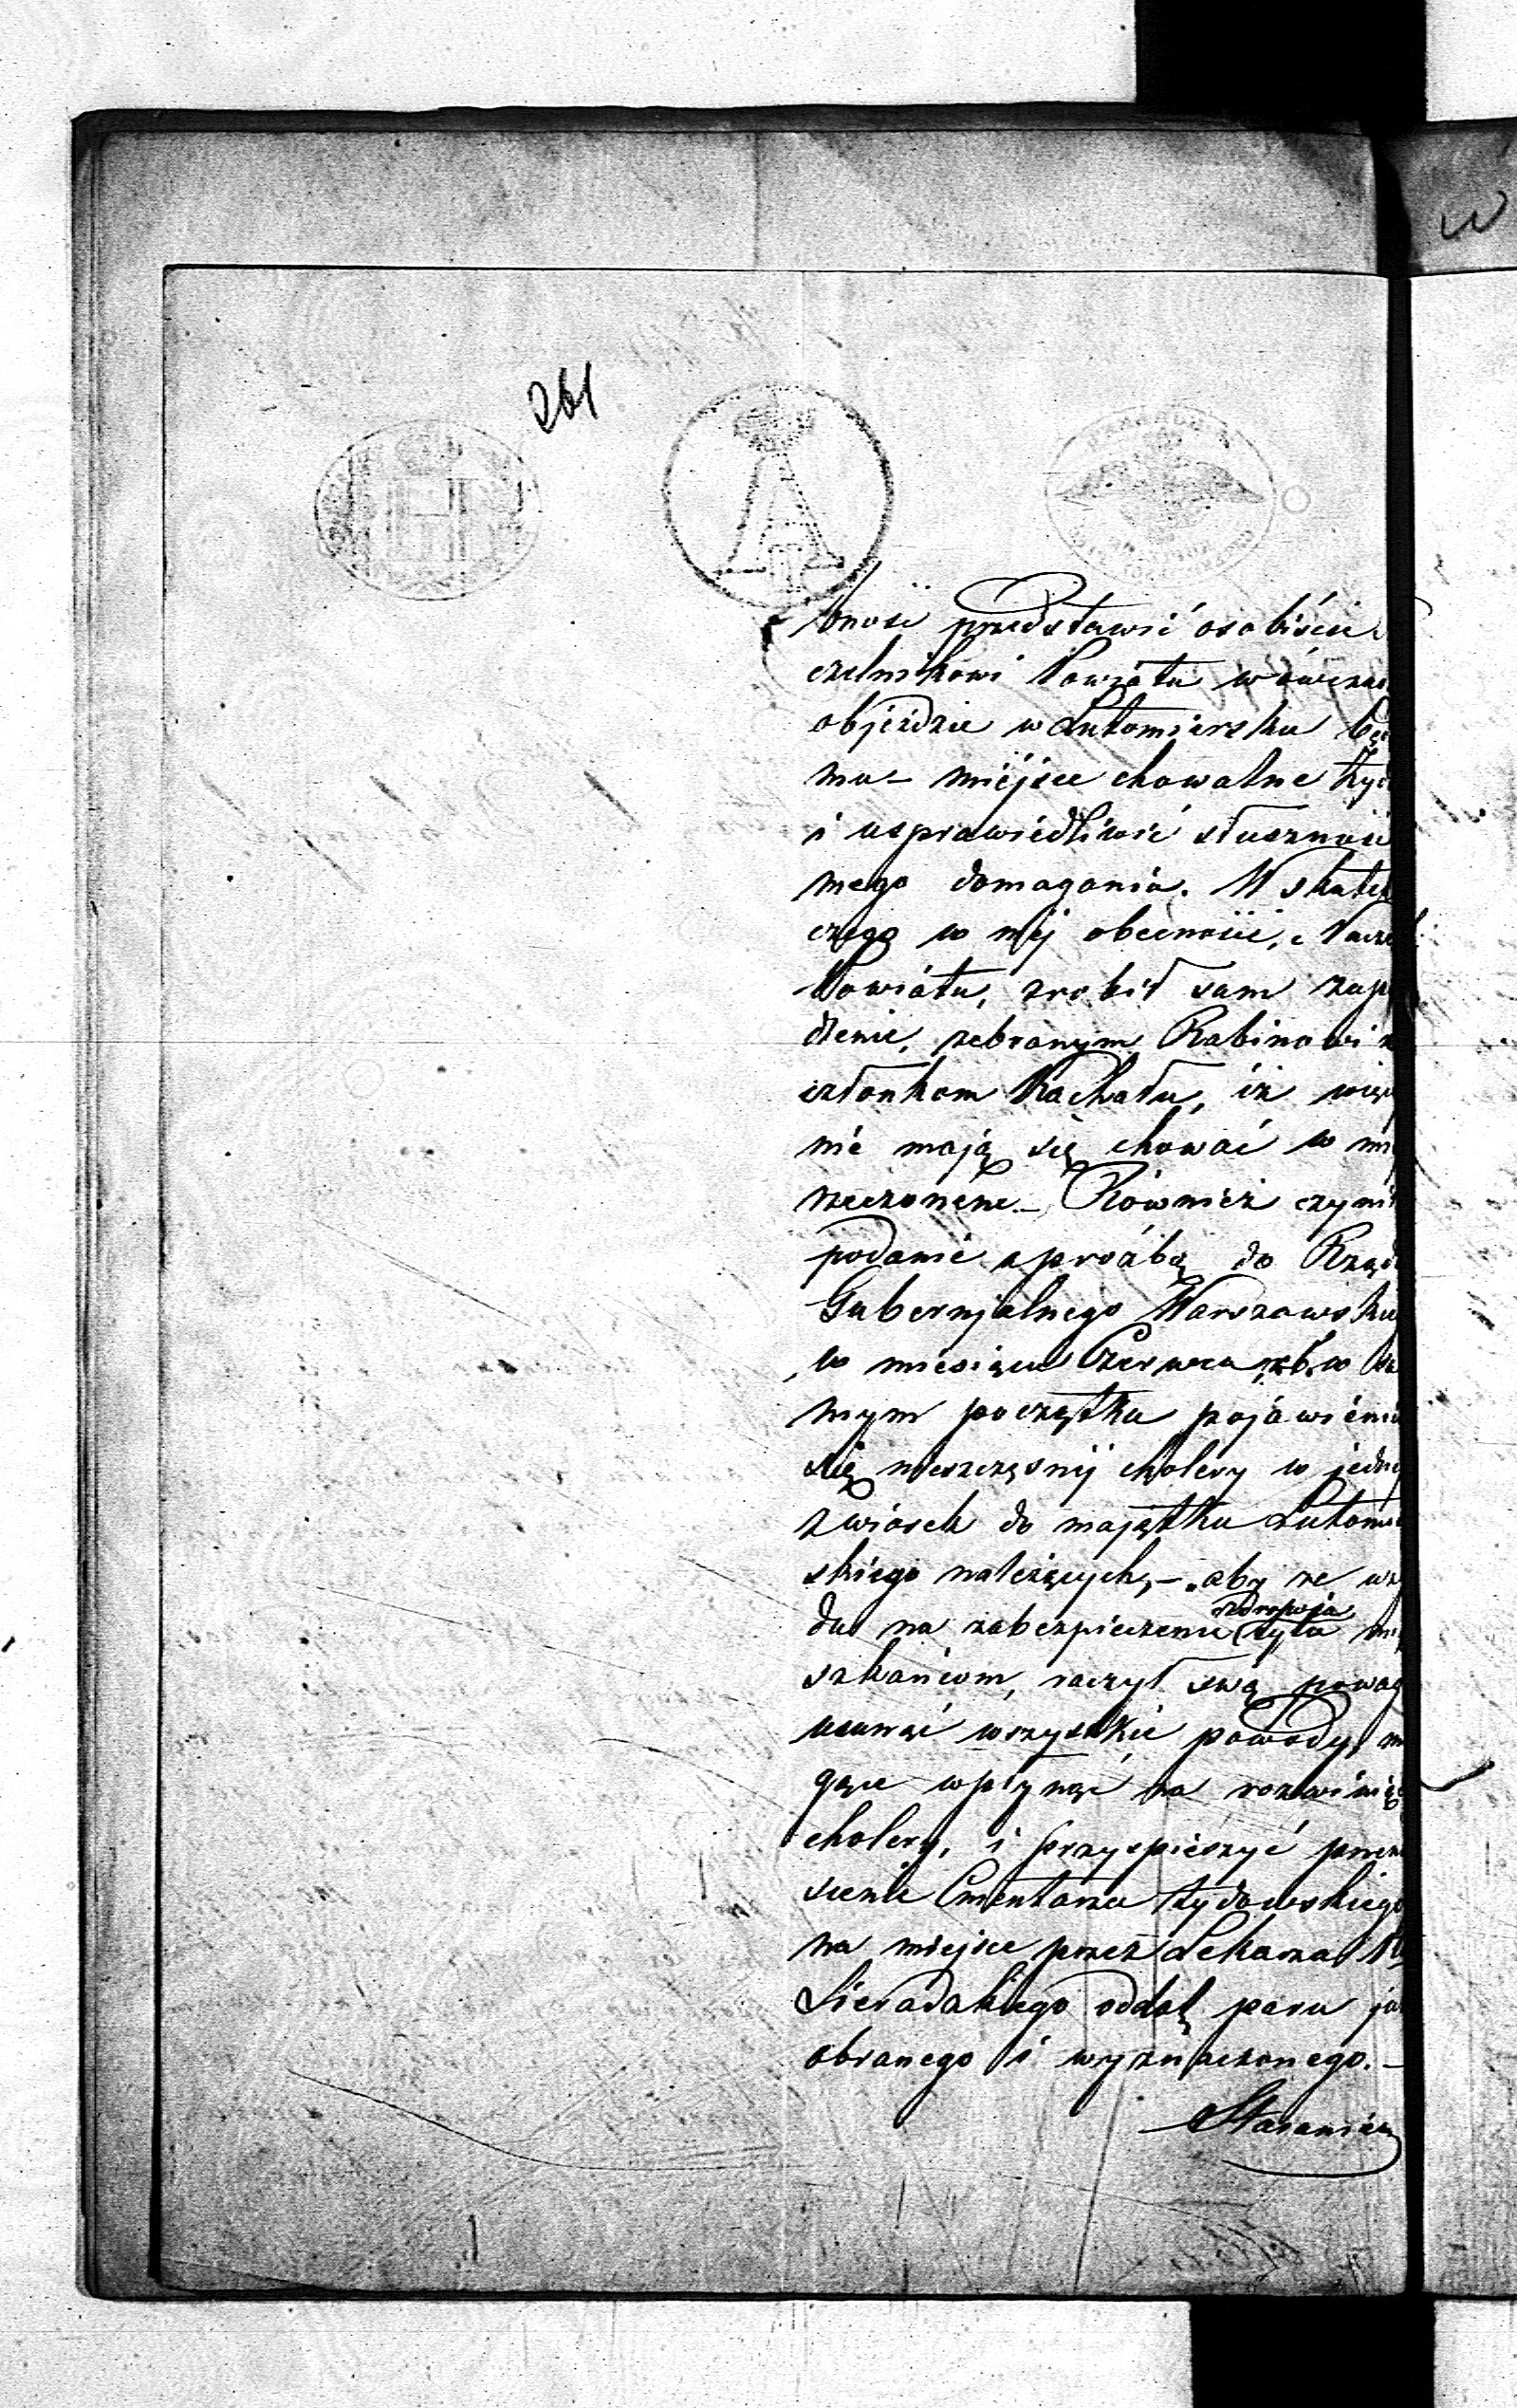 261
W
bnosci przedstawić osobiście
czelnikowi Powiatu wówczas
objeździe w Lutomiersku bę
mu – miejsce chowalne
i usprawiedliwić słuszność
mego domagania. W skutek
czego w mej obecności, Nacze
Powiatu, zrobił sam zap
dzenie, zebranym Rabinowi
członkom Kachału, iż więc
nie mają się chować w mie
rzeczonem. – Również czyni
podanie z prożbą do Rządu
Gubernjalnego Warszawskieg
w miesiącu Czerwcu r. b. w sa
mym początku pojawienia
się nieszczęsnej cholery w jedney
z wiosek do majątku Lutomier
skiego należących, – aby ze wzglę
du na zabezpieczenie zdrowia życia mie
szkańcom, raczył swą powag
usunąć wszystkie powody, mo
gące wpłynąć na rozwinięc
cholery, i przyspieszyć przenie
sienie Cmentarza Żydowskiego
na miejsce przez Lekarza
Sieradzkiego oddal paru
obranego i wyznaczonego. –